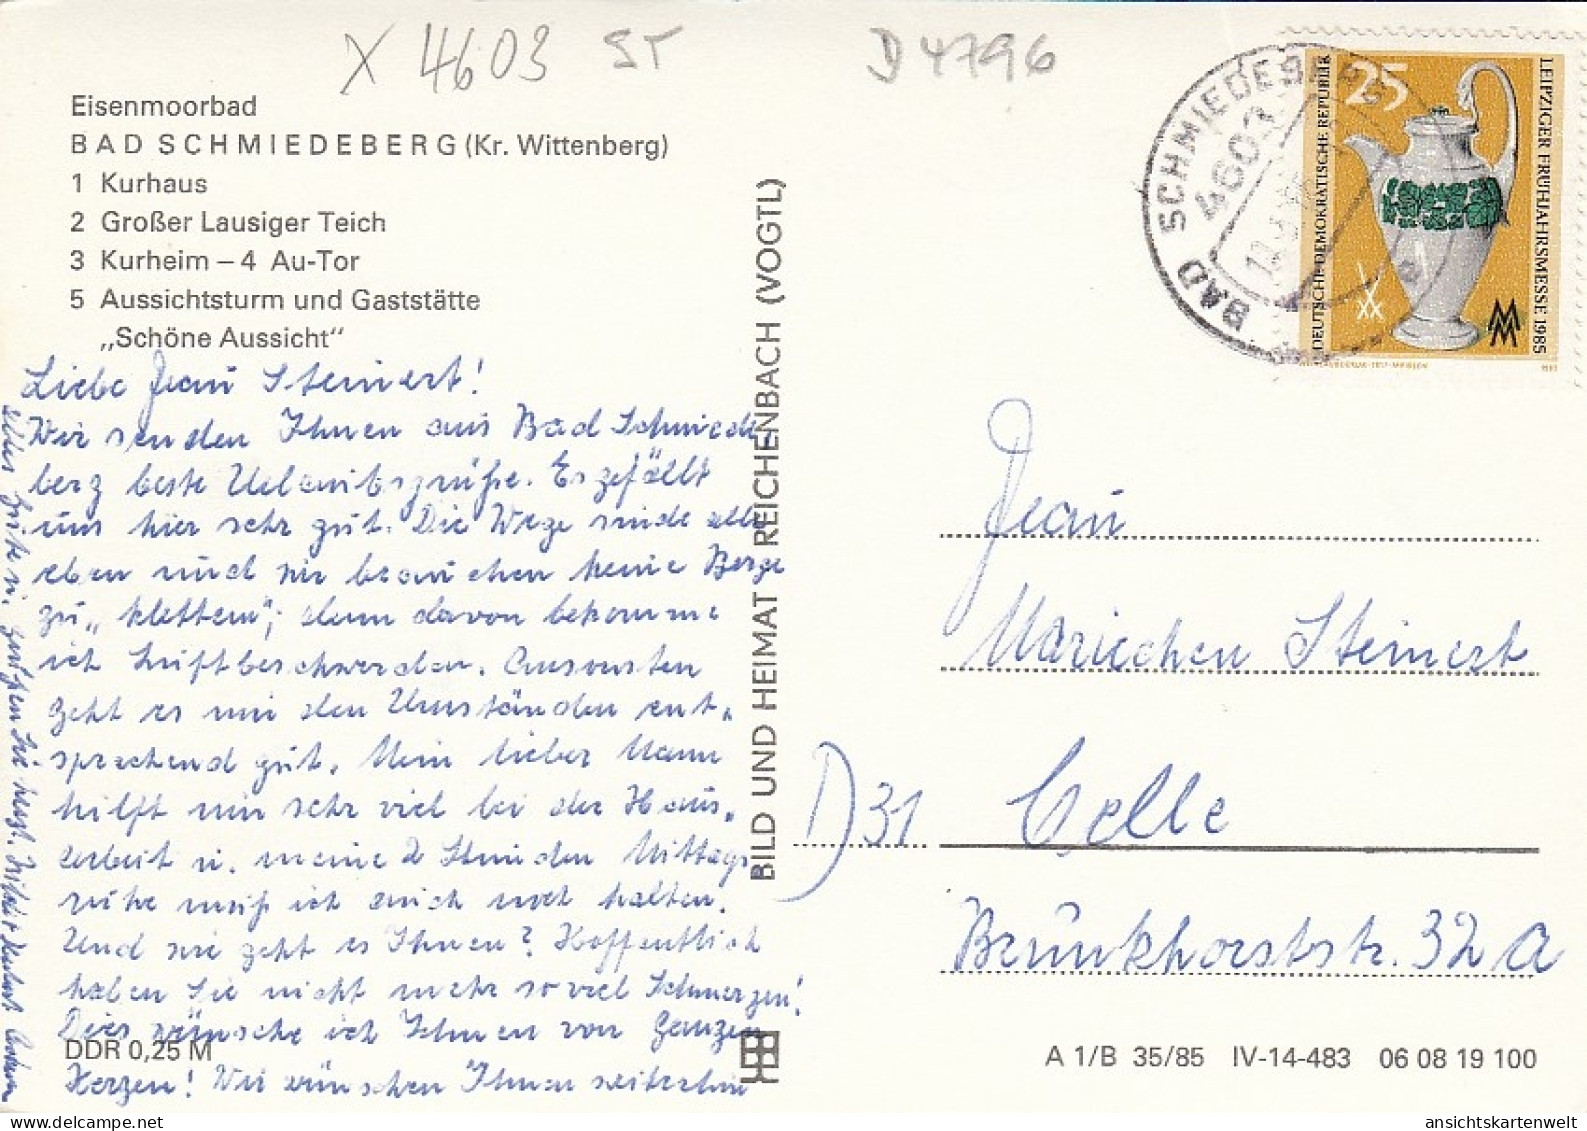 X 4603 ST
D 4796
Eisenmoorbad
BAD SCHMIEDEBERG (Kr. Wittenberg)
1 Kurhaus
2 Großer Lausiger Teich
3 Kurheim – 4 Au-Tor
5 Aussichtsturm und Gaststätte
„Schöne Aussicht"
Liebe Frau Steinert!
Wir senden Ihnen aus Bad Schmiede-
berg beste Urlaubsgrüße. Es gefällt
uns hier sehr gut. Die Wege sind alle
eben und wir brauchen keine Berge
zu „klettern", denn davon bekomme
ich Luftbeschwerden. Ansonsten
geht es mir den Umständen ent-
sprechend gut. Mein lieber Mann
hilft mir sehr viel bei der Haus-
arbeit u. meine 2 Stunden Mittags-
ruhe muß ich auch noch halten.
Und wie geht es Ihnen? Hoffentlich
haben Sie nicht mehr so viel Schmerzen!
Dies wünsche ich Ihnen von ganzem
Herzen! Wir wünschen Ihnen weiterhin
alles Gute u. grüßen Sie herzl.
DDR 0,25 M
BILD UND HEIMAT REICHENBACH (VOGTL)
BAD SCHMIEDEBERG
4603
DEUTSCHE DEMOKRATISCHE REPUBLIK
25
LEIPZIGER FRÜHJAHRSMESSE 1985
MM
Frau
Mariechen Steinert
D 31 Celle
Brünkhorststr. 32 A
A 1/B 35/85 IV-14-483 06 08 19 100
ansichtskartenwelt@delcampe.net